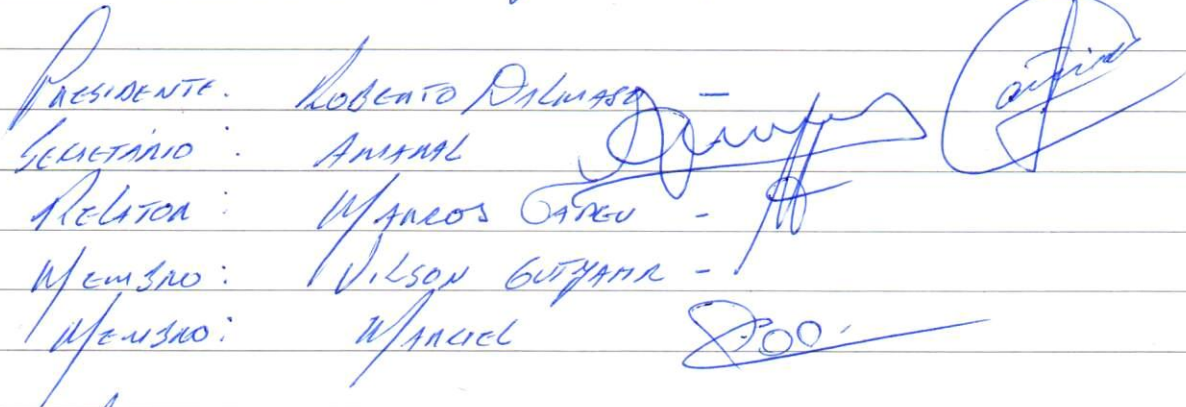 PRESIDENTE. ROBERTO DALMASO -
SECRETÁRIO : AMARAL
RELATOR : MARCOS -
MEMBRO : VILSON GUTJAHR -
MEMBRO : MARCIEL